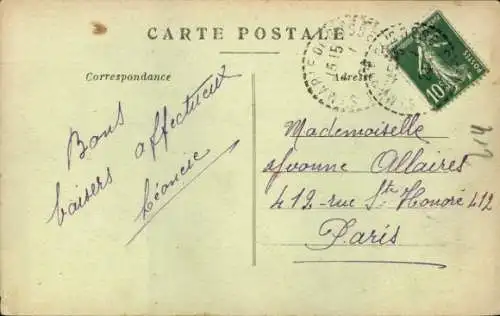 CARTE POSTALE
Correspondance
Adresse
Bons
baisers affectueux
Léoncie
Mademoiselle
Yvonne Allaires
412 rue St Honoré 412
Paris
214
10